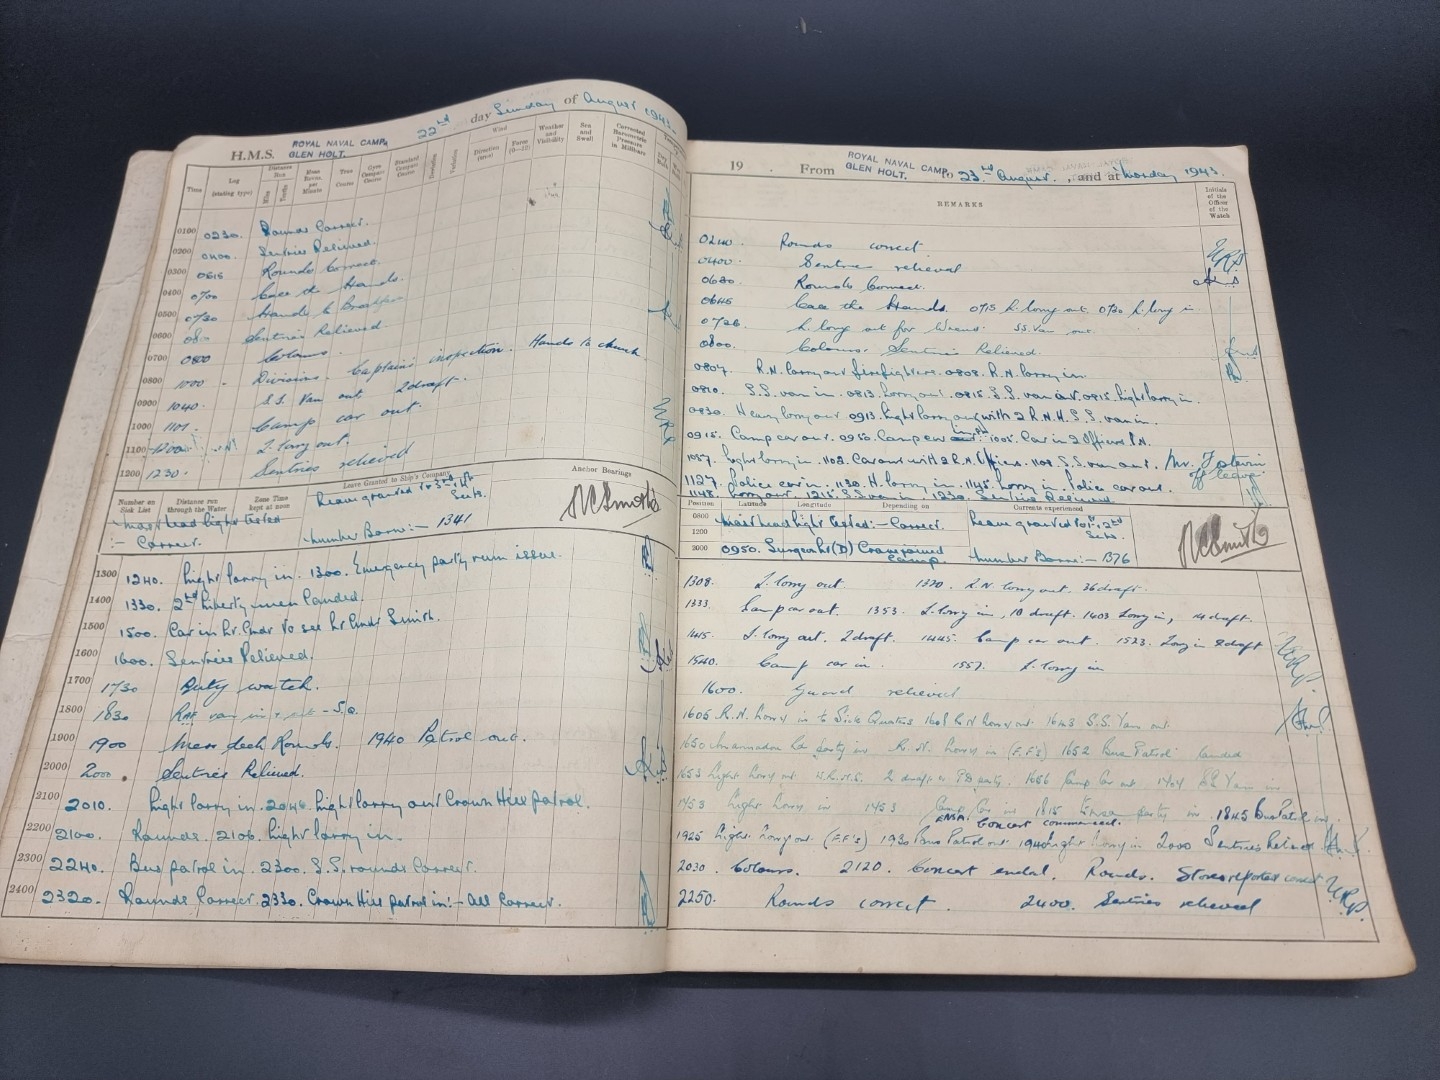 22nd day Sunday of August 1943.
H.M.S. ROYAL NAVAL CAMP, GLEN HOLT.
Time
Log (stating type)
Distance Run
Miles
Tenths
Mean Revs. per Minute
True Course
Gyro Compass Course
Standard Compass Course
Deviation
Variation
Wind
Direction (true)
Force (0—12)
Weather and Visibility
Sea and Swell
Corrected Barometric Pressure in Millibars
0100 0230. Rounds Correct.
0200 0400. Sentries Relieved.
0300 0615 Rounds Correct.
0400 0700 Call the Hands.
0500 0730 Hands to Breakfast
0600 Sentries Relieved.
0700 0800 Colours.
0800 1000 Divisions. Captain's inspection. Hands to church.
0900 1040. S.S. Van out 2 draft.
1000 1101. Camp car out.
1100 L. lorry out.
1200 1230. Sentries relieved
Number on Sick List
Distance run through the Water
Zone Time kept at noon
Leave Granted to Ship's Company
Anchor Bearings
Mast head light tested :- Correct.
Leave granted to 3rd 4th Sects.
Number Borne:- 1341
1300 1240. Light lorry in. 1300. Emergency party rum issue.
1400 1330. 2nd Liberty men landed.
1500 1500. Car in Lt. Cmdr to see Lt Cmdr Smith.
1600 1600. Sentries Relieved.
1700 1730 Duty watch.
1800 1830 RAF van in + out - S.Q.
1900 1900 Mess deck Rounds. 1940 Patrol out.
2000 2000 Sentries Relieved.
2100 2010. Light lorry in. 2046. Light lorry out Crown Hill patrol.
2200 2100. Rounds. 2106. Light lorry in.
2300 2240. Bus patrol in. 2300. S.S. rounds Correct.
2400 2320. Rounds Correct. 2330. Crown Hill patrol in:- All Correct.
19 . From ROYAL NAVAL CAMP, GLEN HOLT. to 23rd August. , and at Monday 1943.
REMARKS
Initials of the Officer of the Watch
0240. Rounds correct
0400. Sentries relieved
0630 Rounds Correct.
0645 Call the Hands. 0715 L. lorry out. 0730 L. lorry in.
0726 L. lorry out for Wrens. SS. Van out.
0800. Colours. Sentries Relieved.
0807. R.N. lorry out firefighters. 0808. R.N. lorry in.
0810. S.S. van in. 0813. Lorry out. 0815. S.S. van out. 0815. Light lorry in.
0830. Heavy lorry out 0913. Light lorry out with 2 R.N.H. S.S. van in.
0915. Camp car out. 0950. Camp car in. 1005. Car in 2 Officers R.N.
1057. Light lorry in. 1102. Car out with 2 R.N. Officers. 1108. S.S. van out.
1127. Police car in. 1130. H. lorry in. 1145. Lorry in. Police car out.
1148. Lorry out. 1215. S.S. van in. 1230. Sentries Relieved.
Position
Latitude
Longitude
Depending on
Currents experienced
0800
1200
2000
Mast head light tested:- Correct.
0950. Surgeon Lt (D)
Camp.
Leave granted to 1st. 2nd Sects.
Number Borne:- 1376
1308. L. lorry out 1320. R.N. lorry out. 36 draft.
1333. Camp car out. 1353. L. lorry in, 10 draft. 1403 Lorry in, 14 draft.
1415. L. lorry out. 2 draft. 1445. Camp car out. 1523. Lorry in 2 draft
1540. Camp car in. 1557. L. lorry in
1600. Guard relieved
1605 R.N. lorry in to Sick Quarters 1608 R.N. lorry out. 1643 S.S. Van out.
1650 party in R.N. Lorry in (F.F's) 1652 Bus Patrol landed
1653 Light lorry out W.R.N.S. 2 draft 1656 Camp Car out S.S. Van in
1453 Light lorry in 1453 Camp Car in 1815 party in 1845 Bus Patrol in.
ENSA Concert commenced.
1925 Light lorry out (F.F's) 1930 Bus Patrol out. 1940 Light Lorry in 2000 Sentries Relieved
2030 Colours. 2120. Concert ended. Rounds. Stores reported correct
2250. Rounds correct. 2400. Sentries relieved